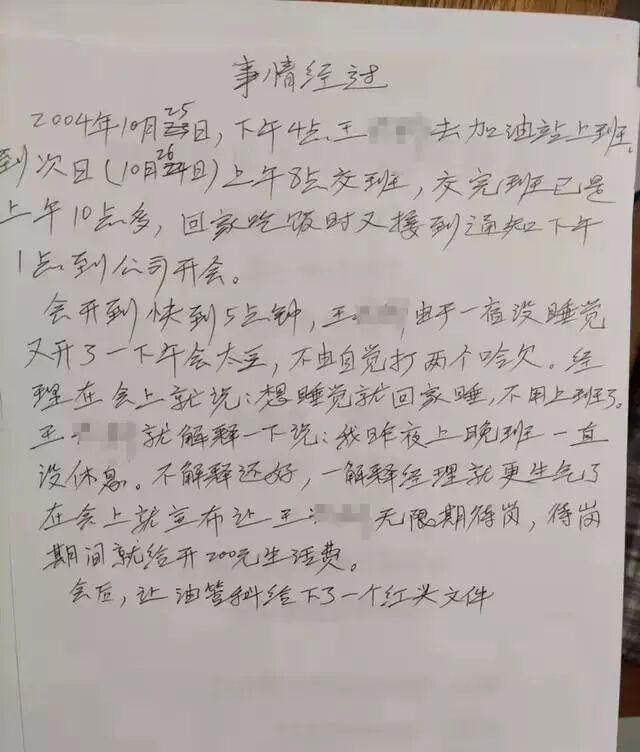 事情经过
2004年10月25日，下午4点王 去加油站上班，
到次日(10月26日)上午8点交班，交完班已是
上午10点多，回家吃饭时又接到通知下午
1点到公司开会。
会开到快到5点钟，王 由于一宿没睡觉
又开了一下午会太乏，不由自觉打两个哈欠。经
理在会上就说：想睡觉就回家睡，不用上班了。
王 就解释一下说：我昨夜上晚班一直
没休息。不解释还好，一解释经理就更生气了
在会上就宣布让王 无限期待岗，待岗
期间就给开200元生活费。
会后，让油管科给下了一个红头文件